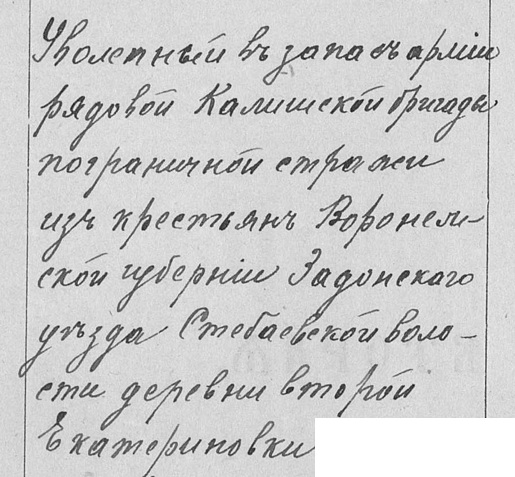 Уволенный въ запасъ арміи
рядовой Калишской бригады
пограничной стражи
изъ крестьянъ Воронеж-
ской губерніи Задонскаго
уѣзда Стебаевской воло-
сти деревни второй
Екатериновки